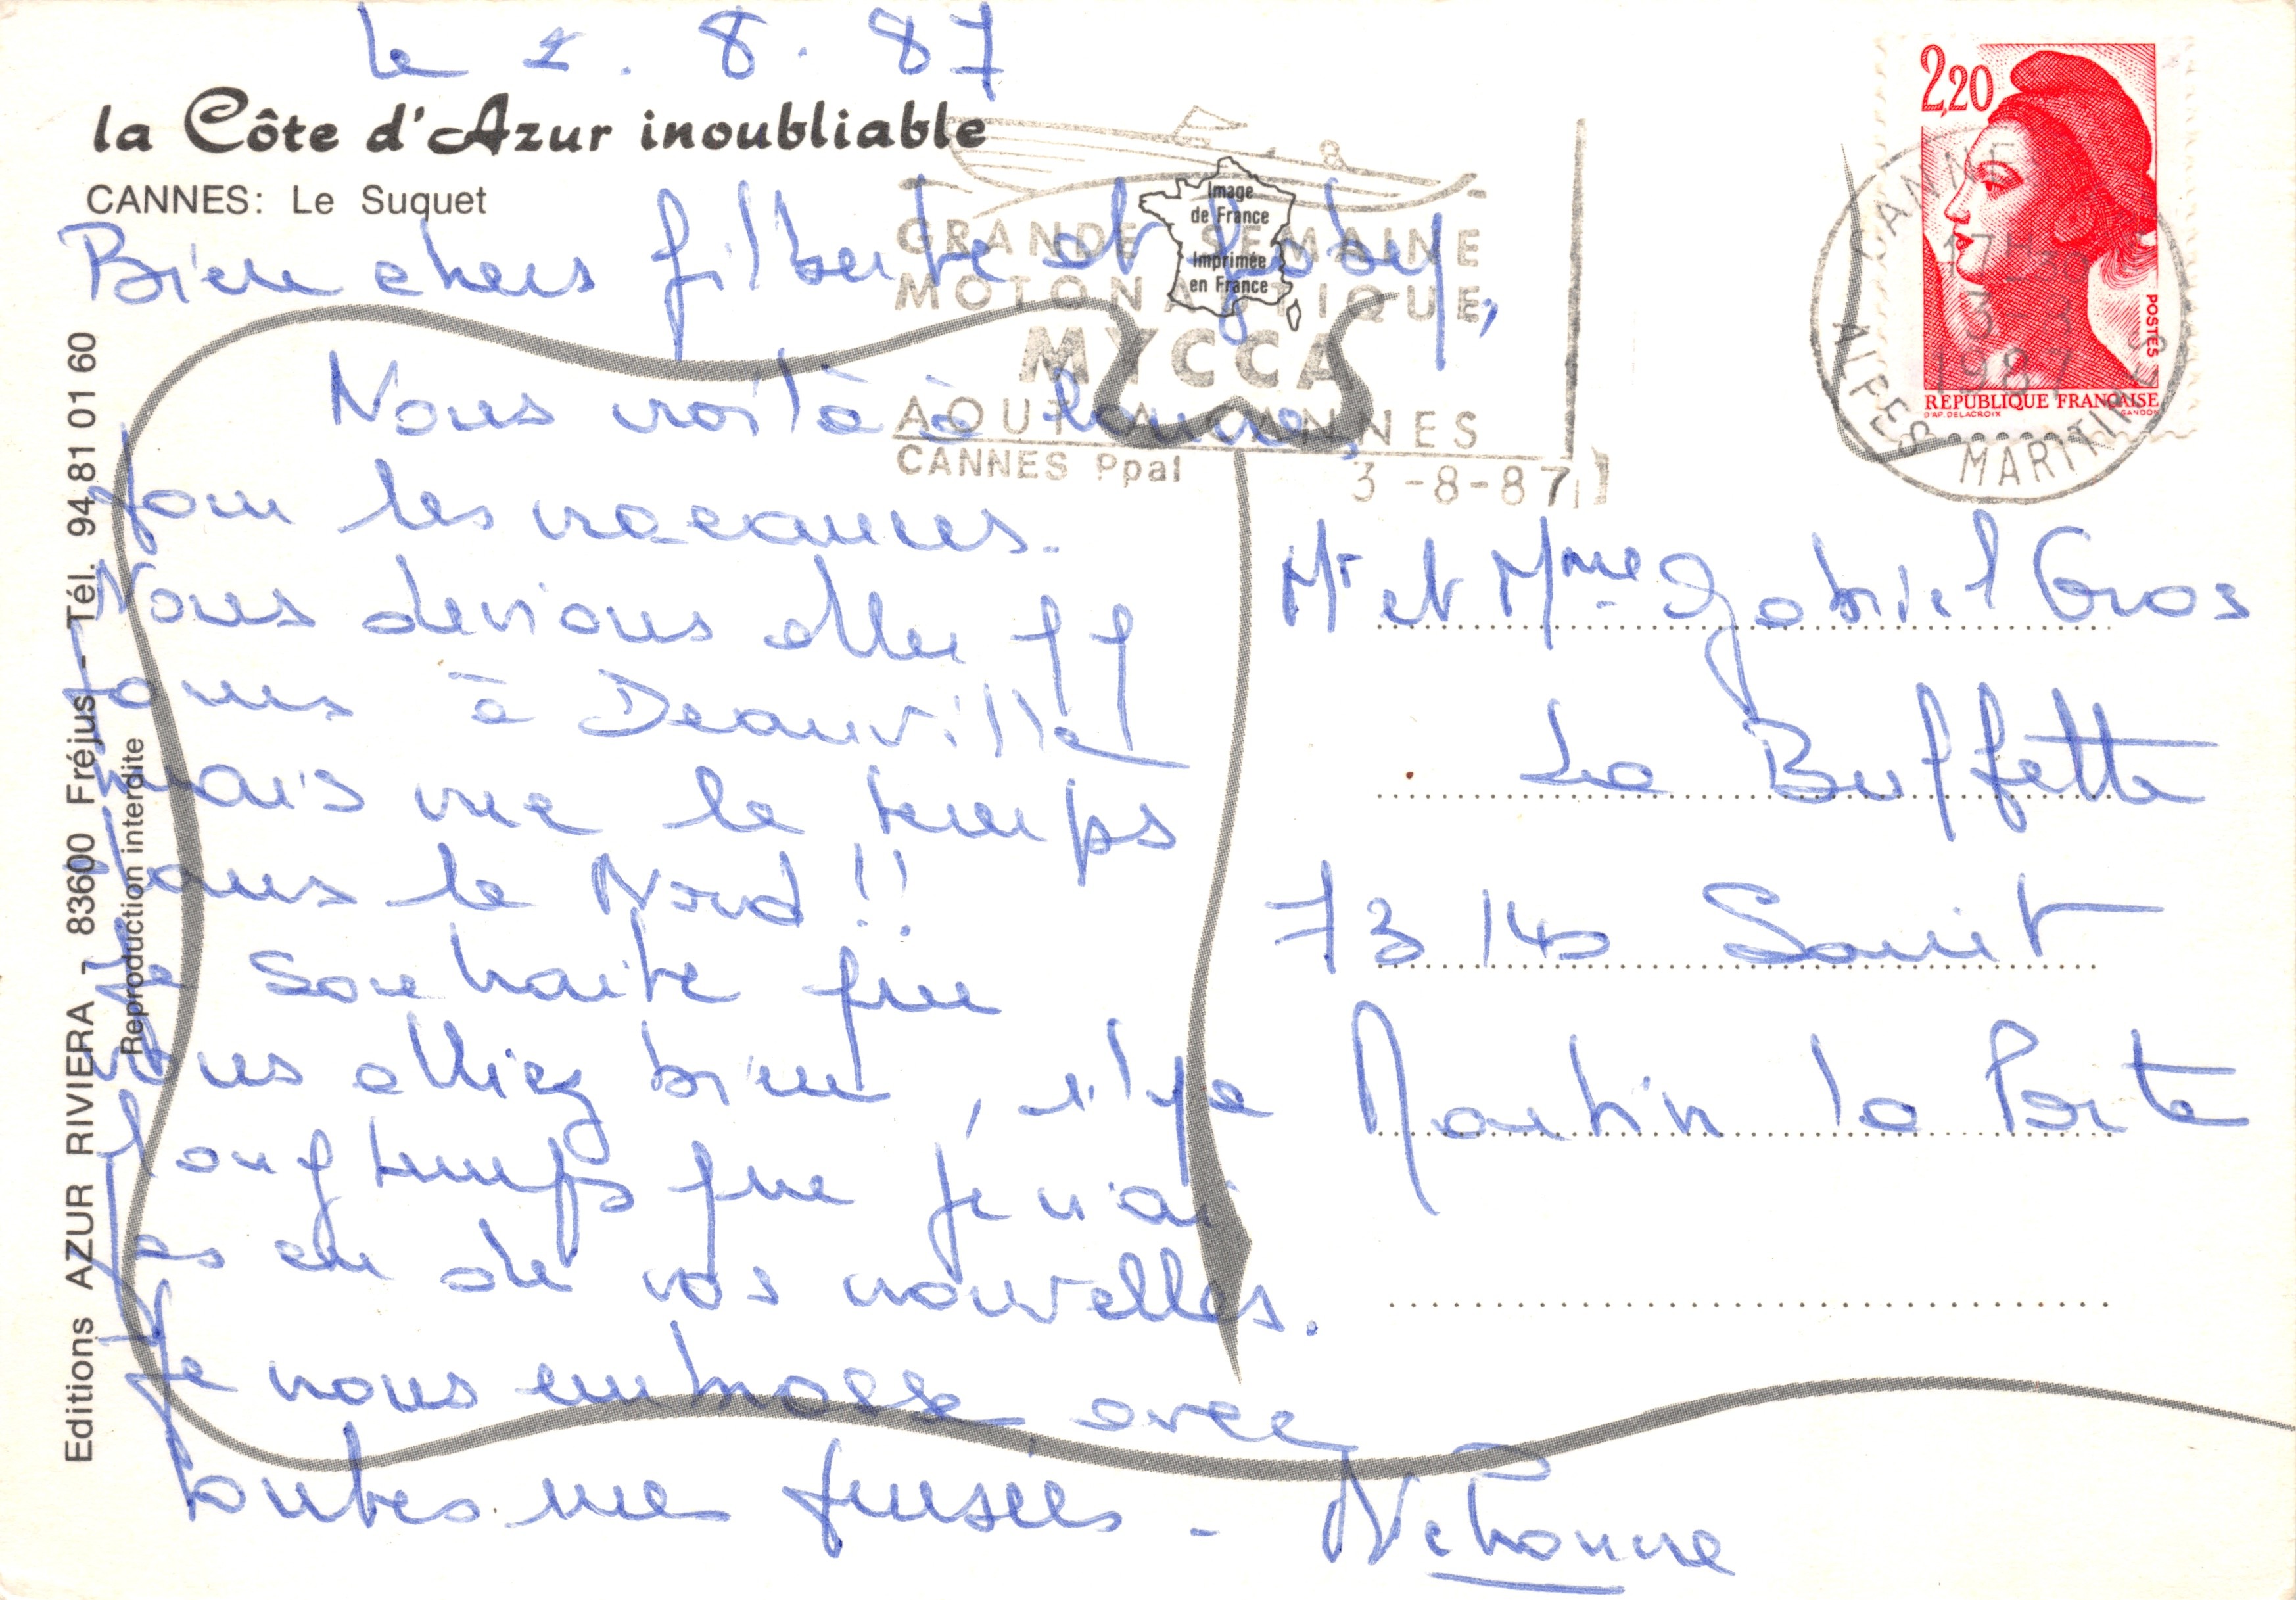 le 2.8.87
la Côte d'Azur inoubliable
CANNES: Le Suquet
Bien chers filberte et gaby,
Nous voilà à Cannes
pour les vacances.
Nous devions aller qq
jours à Deauville
mais vue le temps
dans le Nord !!
Je souhaite que
vous alliez bien, il y a
longtemps que je n'ai
pas eu de vos nouvelles.
Je vous embrasse avec
toutes mes pensées -
Editions AZUR RIVIERA - 83600 Fréjus - Tél. 94 81 01 60
Reproduction interdite
Image
de France
Imprimée
en France
GRANDE SEMAINE
MOTONAUTIQUE
MYCCA
AOUT A CANNES
CANNES Ppal 3-8-87
2,20
POSTES
REPUBLIQUE FRANÇAISE
D'AP. DELACROIX GANDON
CANNES
17H
3-8
1987
ALPES MARITIMES
Mr et Mme Gabriel Gros
La Buffette
73140 Saint
Martin la Porte